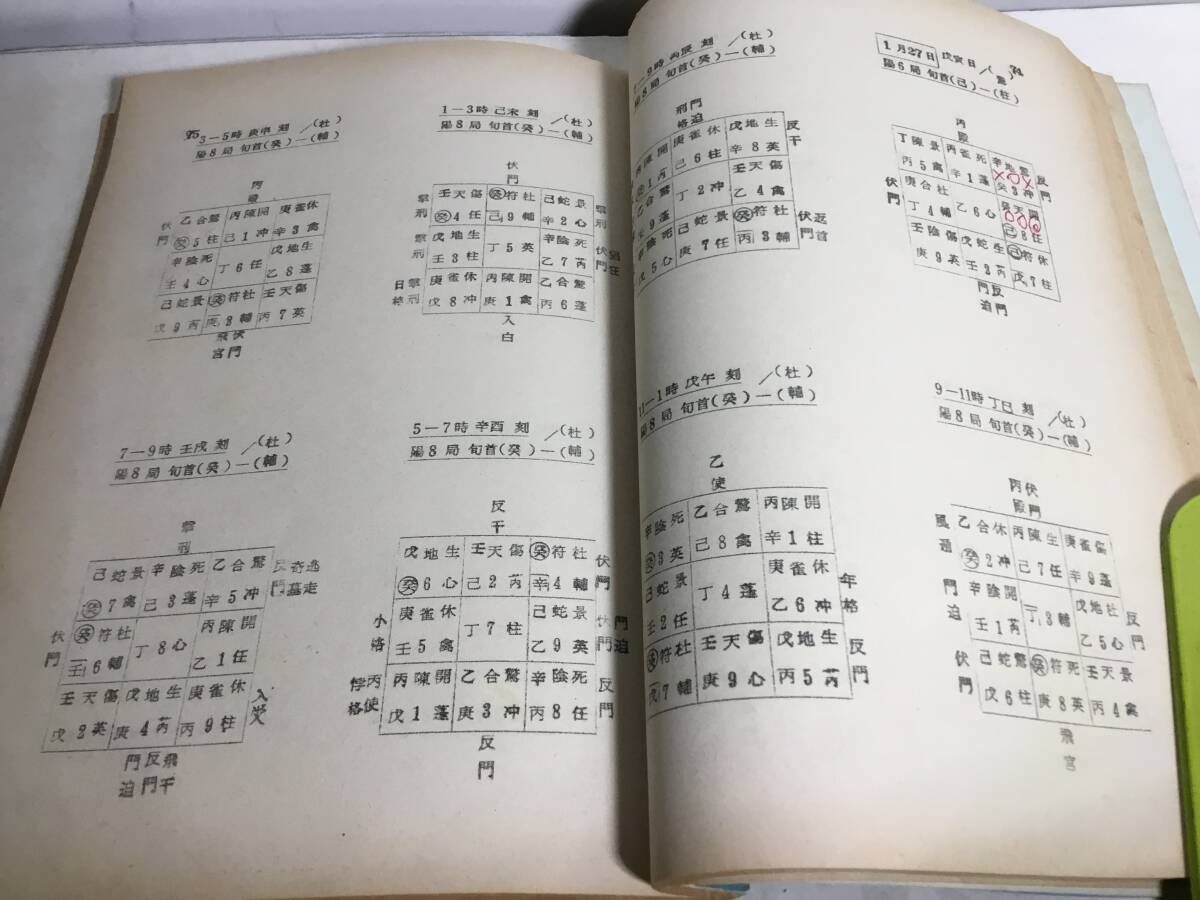 74
1月27日 戊寅日/(驚)
陽6局 旬首(己)—(柱)
丙
殿
丁陳景 丙雀死 辛地驚
丙5禽 辛1蓬 癸3冲
庚合杜 癸天開
丁4輔 乙6心 己8任
壬陰傷 戊蛇生 己符休
庚9英 壬2芮 戊7柱
反門
伏門
門反
迫門
7—9時 丙辰 刻/(杜)
陽8局 旬首(癸)—(輔)
門迫
刑格
丙陳開 庚雀休 戊地生
己6柱 辛8英
乙合驚 壬天傷
丁2冲 乙4禽
辛陰死 己蛇景 癸符杜
戊5心 庚7任 丙3輔
反干
伏門
返首
9—11時 丁巳 刻/(杜)
陽8局 旬首(癸)—(輔)
伏門
丙殿
乙合休 丙陳生 庚雀傷
癸2冲 己7任 辛9蓬
辛陰開 戊地杜
壬1芮 丁3輔 乙5心
己蛇驚 癸符死 壬天景
戊6柱 庚8英 丙4禽
風遁
門迫
伏門
反門
飛宮
11—1時 戊午 刻/(杜)
陽8局 旬首(癸)—(輔)
乙
使
辛陰死 乙合驚 丙陳開
癸3英 己8禽 辛1柱
己蛇景 庚雀休
壬2任 丁4蓬 乙6冲
癸符杜 壬天傷 戊地生
戊7輔 庚9心 丙5芮
年格
反門
75
1—3時 己未 刻/(杜)
陽8局 旬首(癸)—(輔)
伏
門
壬天傷 癸符杜 己蛇景
癸4任 己9輔 辛2心
戊地生 辛陰死
壬3柱 丁5英 乙7芮
庚雀休 丙陳開 乙合驚
戊8冲 庚1禽 丙6蓬
撃刑
撃刑
日格
撃刑
撃刑
伏門
入
白
3—5時 庚申 刻/(杜)
陽8局 旬首(癸)—(輔)
丙
殿
乙合驚 丙陳開 庚雀休
癸5柱 己1冲 辛3禽
辛陰死 戊地生
壬4心 丁6任 乙8蓬
己蛇景 癸符杜 壬天傷
戊9芮 庚2輔 丙7英
伏門
伏門
飛宮
5—7時 辛酉 刻/(杜)
陽8局 旬首(癸)—(輔)
反
干
戊地生 壬天傷 癸符杜
癸6心 己2芮 辛4輔
庚雀休 己蛇景
壬5禽 丁7柱 乙9英
丙陳開 乙合驚 辛陰死
戊1蓬 庚3冲 丙8任
小格
丙使
悖格
伏門
門迫
伏門
反門
反
門
7—9時 壬戌 刻/(杜)
陽8局 旬首(癸)—(輔)
撃
刑
己蛇景 辛陰死 乙合驚
癸7禽 己3蓬 辛5冲
癸符杜 丙陳開
壬6輔 丁8心 乙1任
壬天傷 戊地生 庚雀休
戊2英 庚4芮 丙9柱
伏門
逃走
奇墓
反門
入熒
飛干
反門
門迫